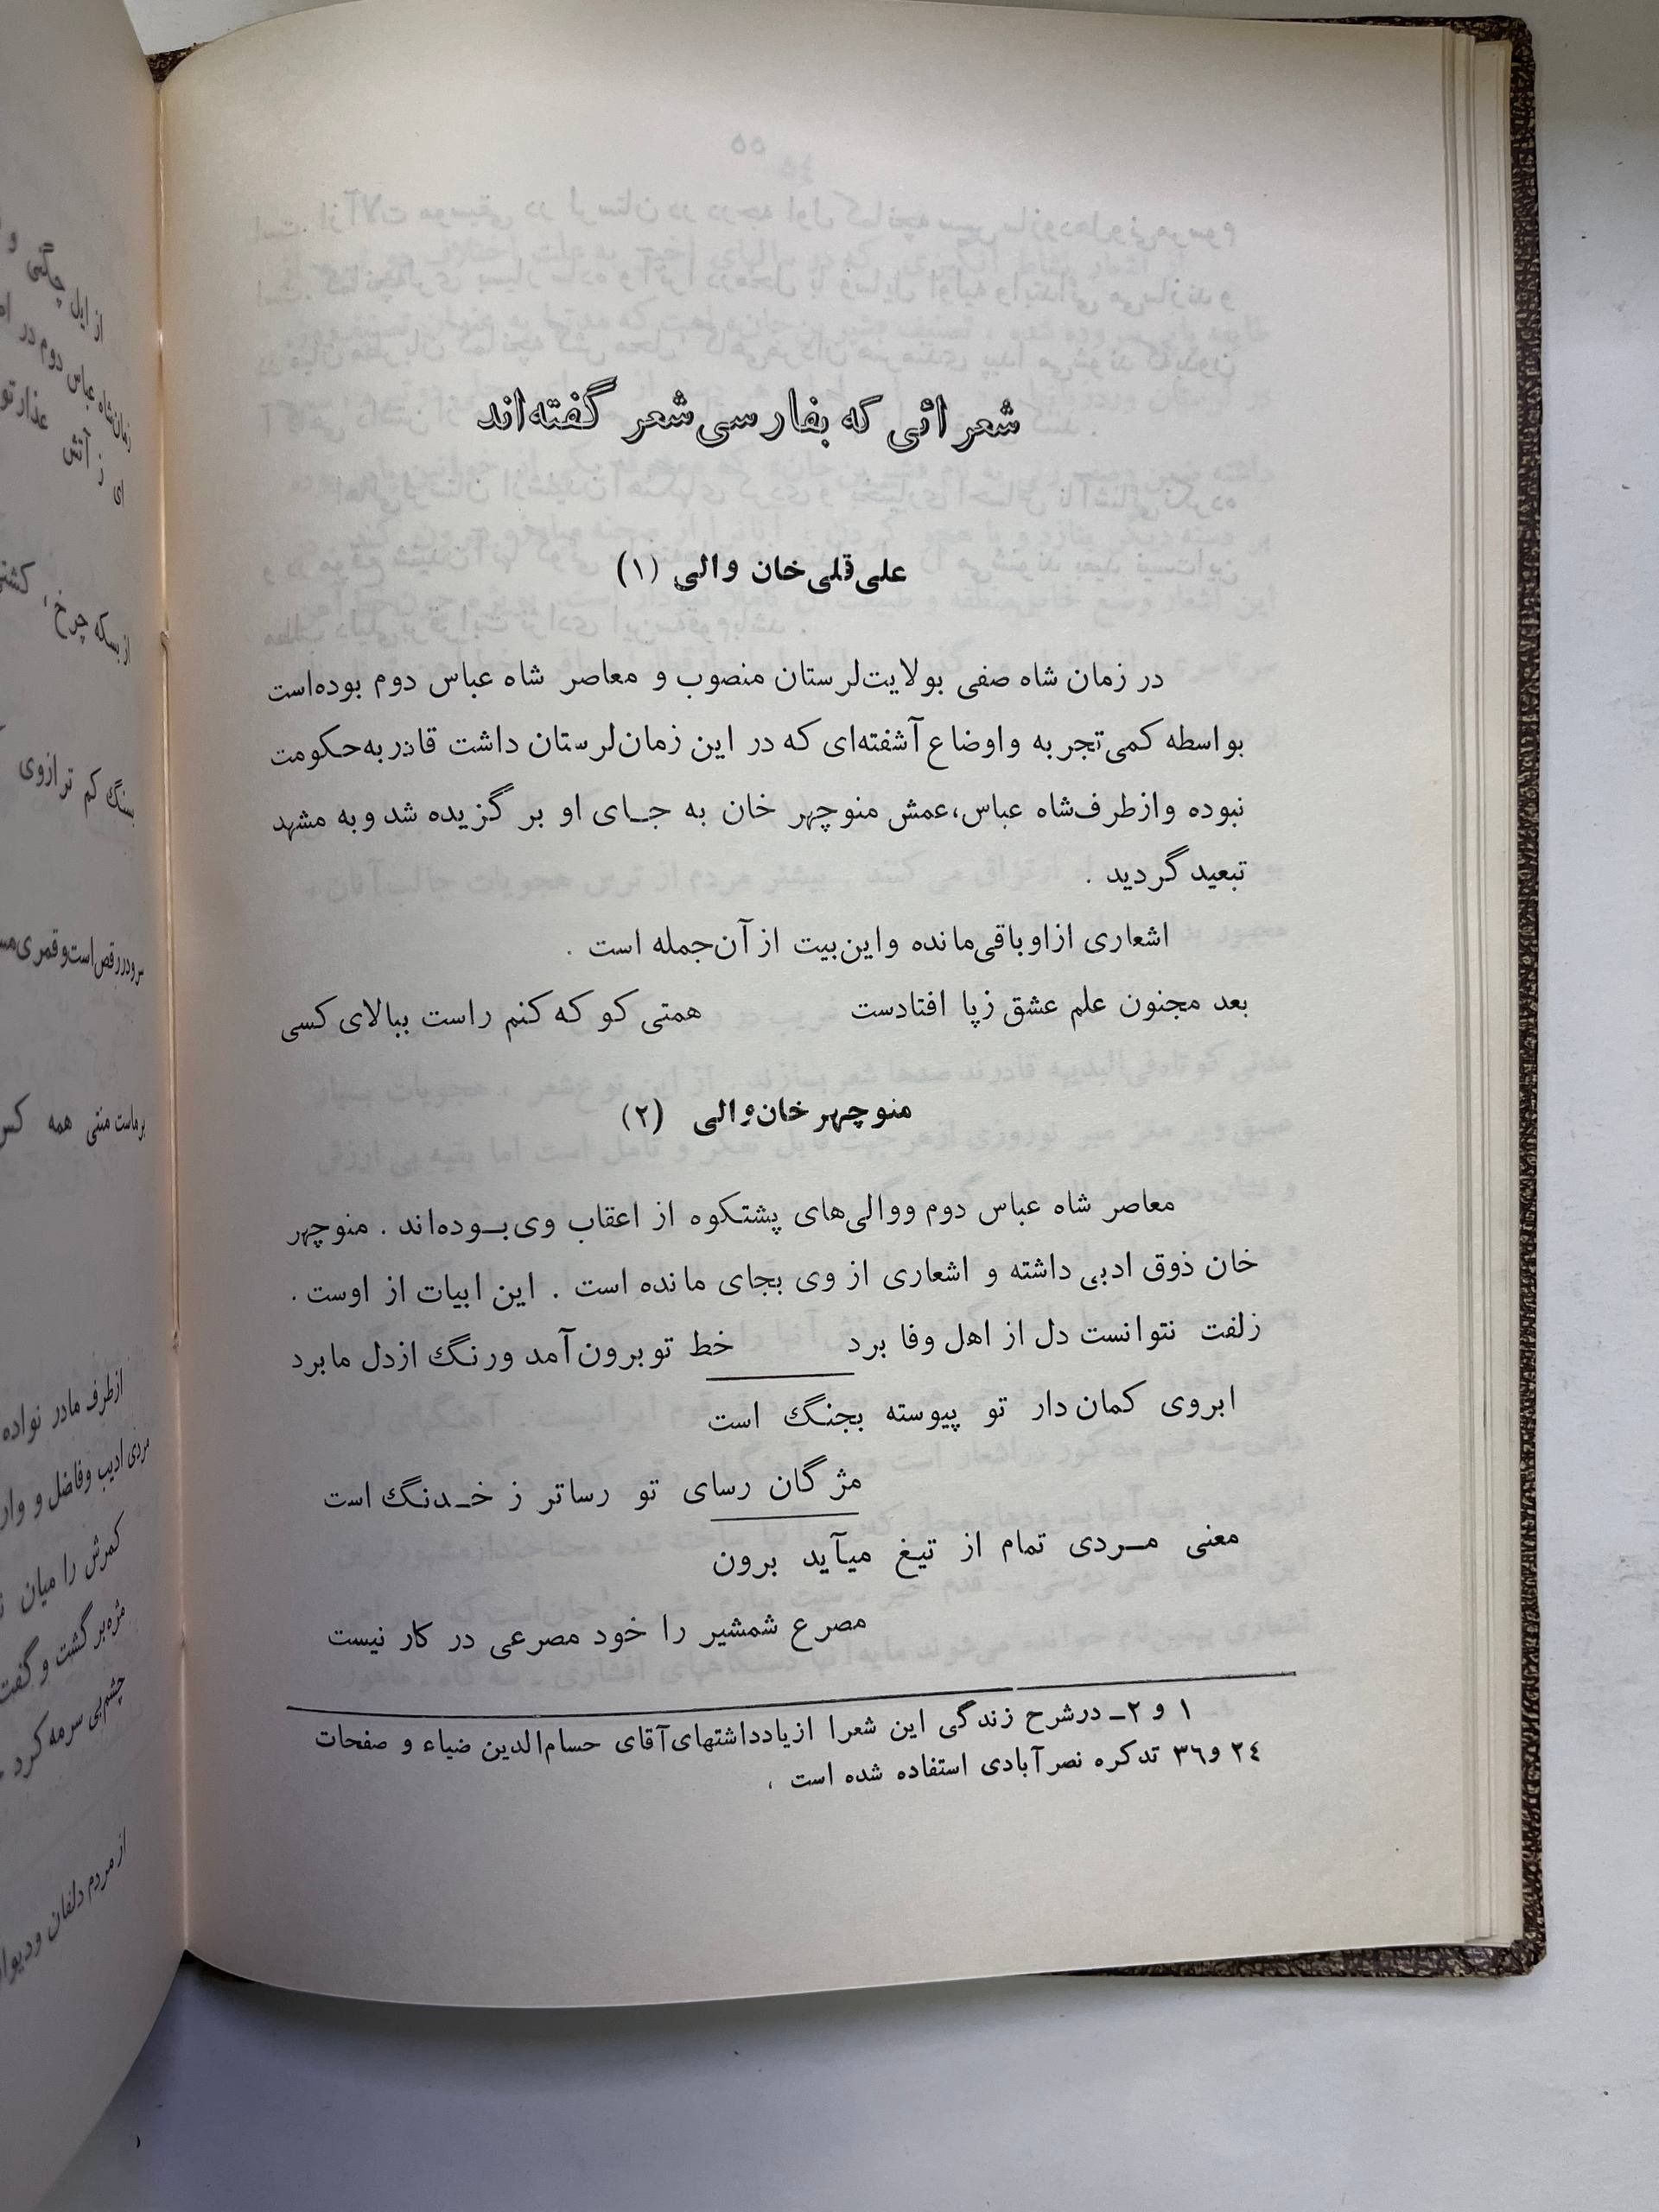 شعرائی که بفارسی شعر گفته‌اند
علی‌قلی‌خان والی (۱)
در زمان شاه صفی بولایت‌لرستان منصوب و معاصر شاه عباس دوم بوده‌است
بواسطه کمی‌تجربه واوضاع آشفته‌ای که در این زمان‌لرستان داشت قادربه‌حکومت
نبوده وازطرف‌شاه عباس،عمش منوچهر خان به جـای او برگزیده شد وبه مشهد
تبعید گردید .
اشعاری ازاوباقی‌مانده واین‌بیت ازآن‌جمله است .
بعد مجنون علم عشق زپا افتادست همتی کو که کنم راست ببالای کسی
منوچهرخان‌والی (۲)
معاصر شاه عباس دوم ووالی‌های پشتکوه از اعقاب وی‌بـوده‌اند . منوچهر
خان ذوق ادبی داشته و اشعاری از وی بجای مانده است . این ابیات از اوست .
زلفت نتوانست دل از اهل وفا برد خط توبرون‌آمد ورنگ ازدل مابرد
ابروی کمان‌دار تو پیوسته بجنگ است
مژگان رسای تو رساتر ز خـدنگ است
معنی مـردی تمام از تیغ میآید برون
مصرع شمشیر را خود مصرعی در کار نیست
۱ و ۲ـ درشرح زندگی این شعرا ازیادداشتهای‌آقای حسام‌الدین ضیاء و صفحات
۲٤ و۳٦ تدکره نصرآبادی استفاده شده است .
از ایل چگنی و
زمان‌شاه عباس دوم در
ای ز آتش عذار تو
از بسکه چرخ ،
بسنگ کم ترازوی
برماست منتی همه
ازطرف مادر نواده
مردی ادیب وفاضل و
کمرش را میان
مژه‌برگشت و گفت
چشم‌بی سرمه کرد
از مردم دلفان